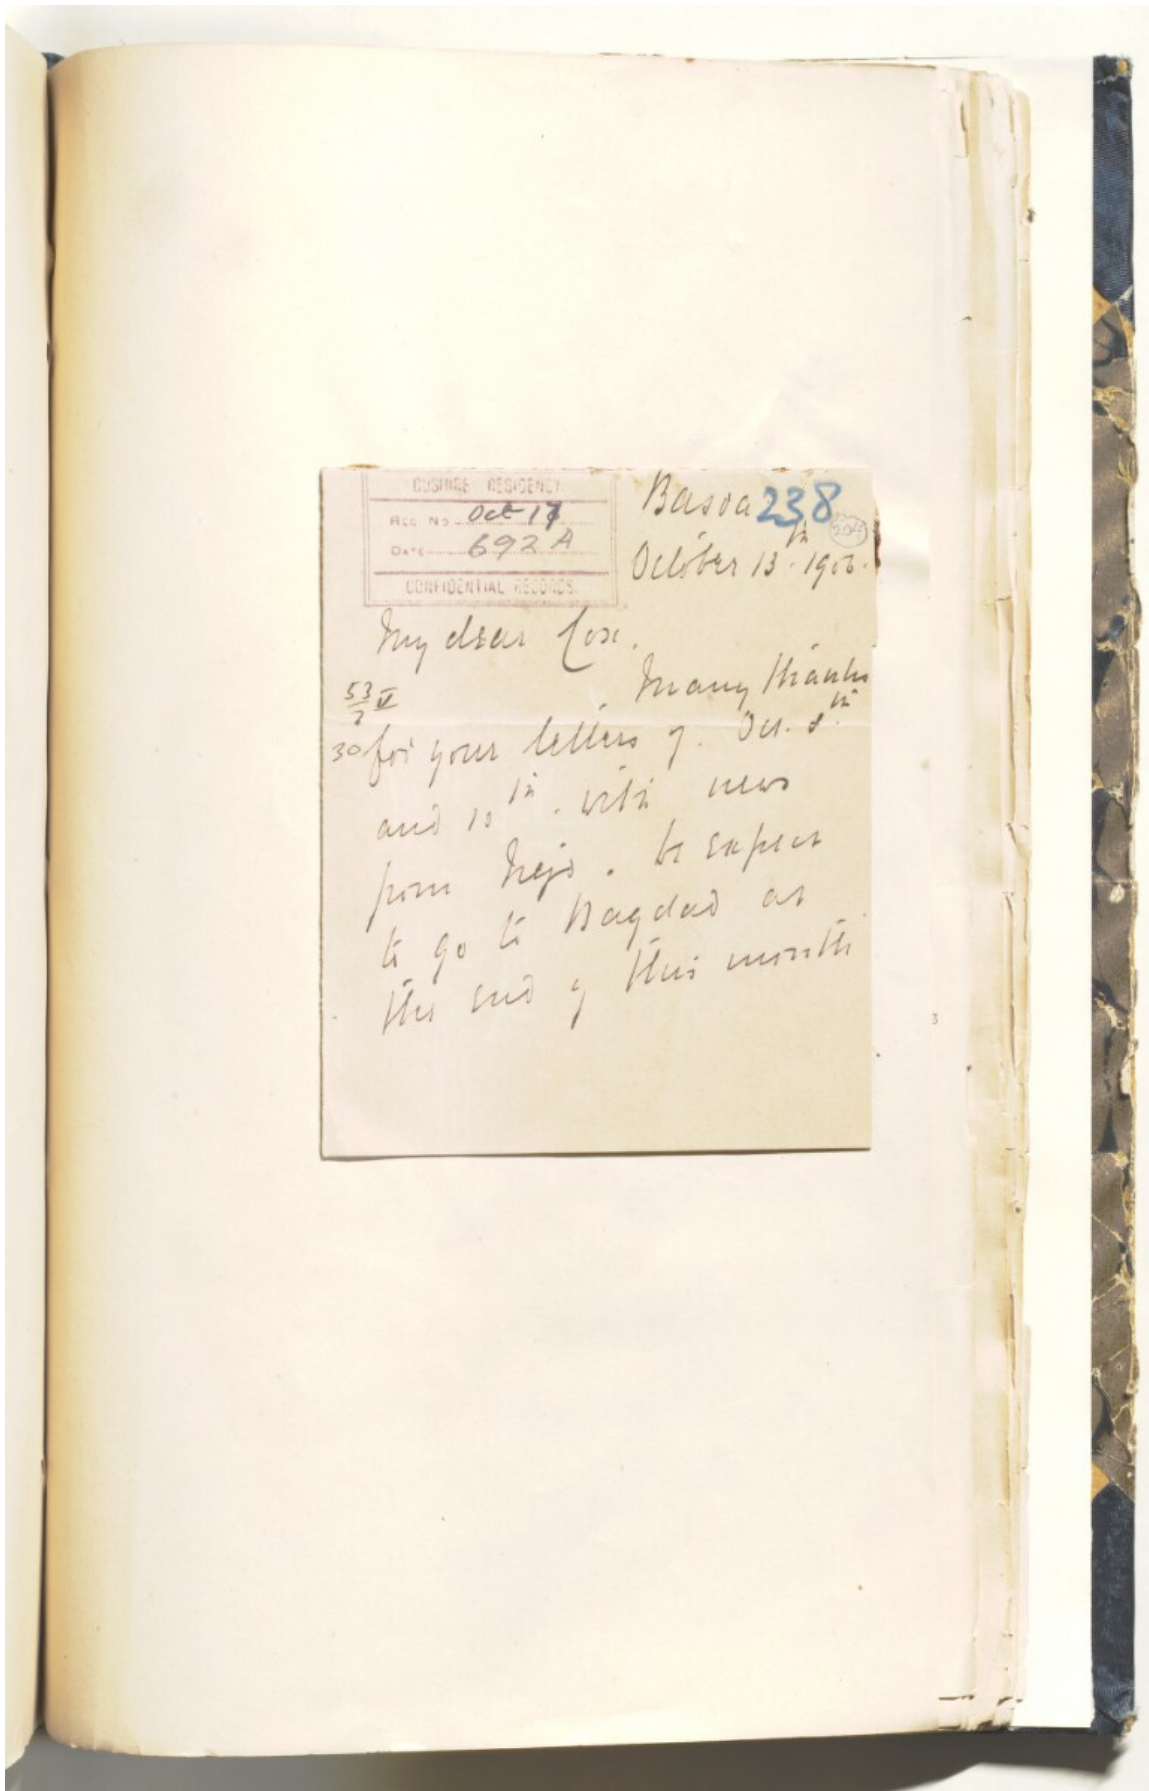 BUSHIRE RESIDENCY
Reg No Oct 17
Date 692 A
CONFIDENTIAL RECORDS.
Basra 238
October 13th 1906.
My dear Cox.
53/7 V
Many thanks
30 for your letters of Oct. 8th
and 10th. with news
from Nejd. We expect
to go to Bagdad at
the end of this month
3